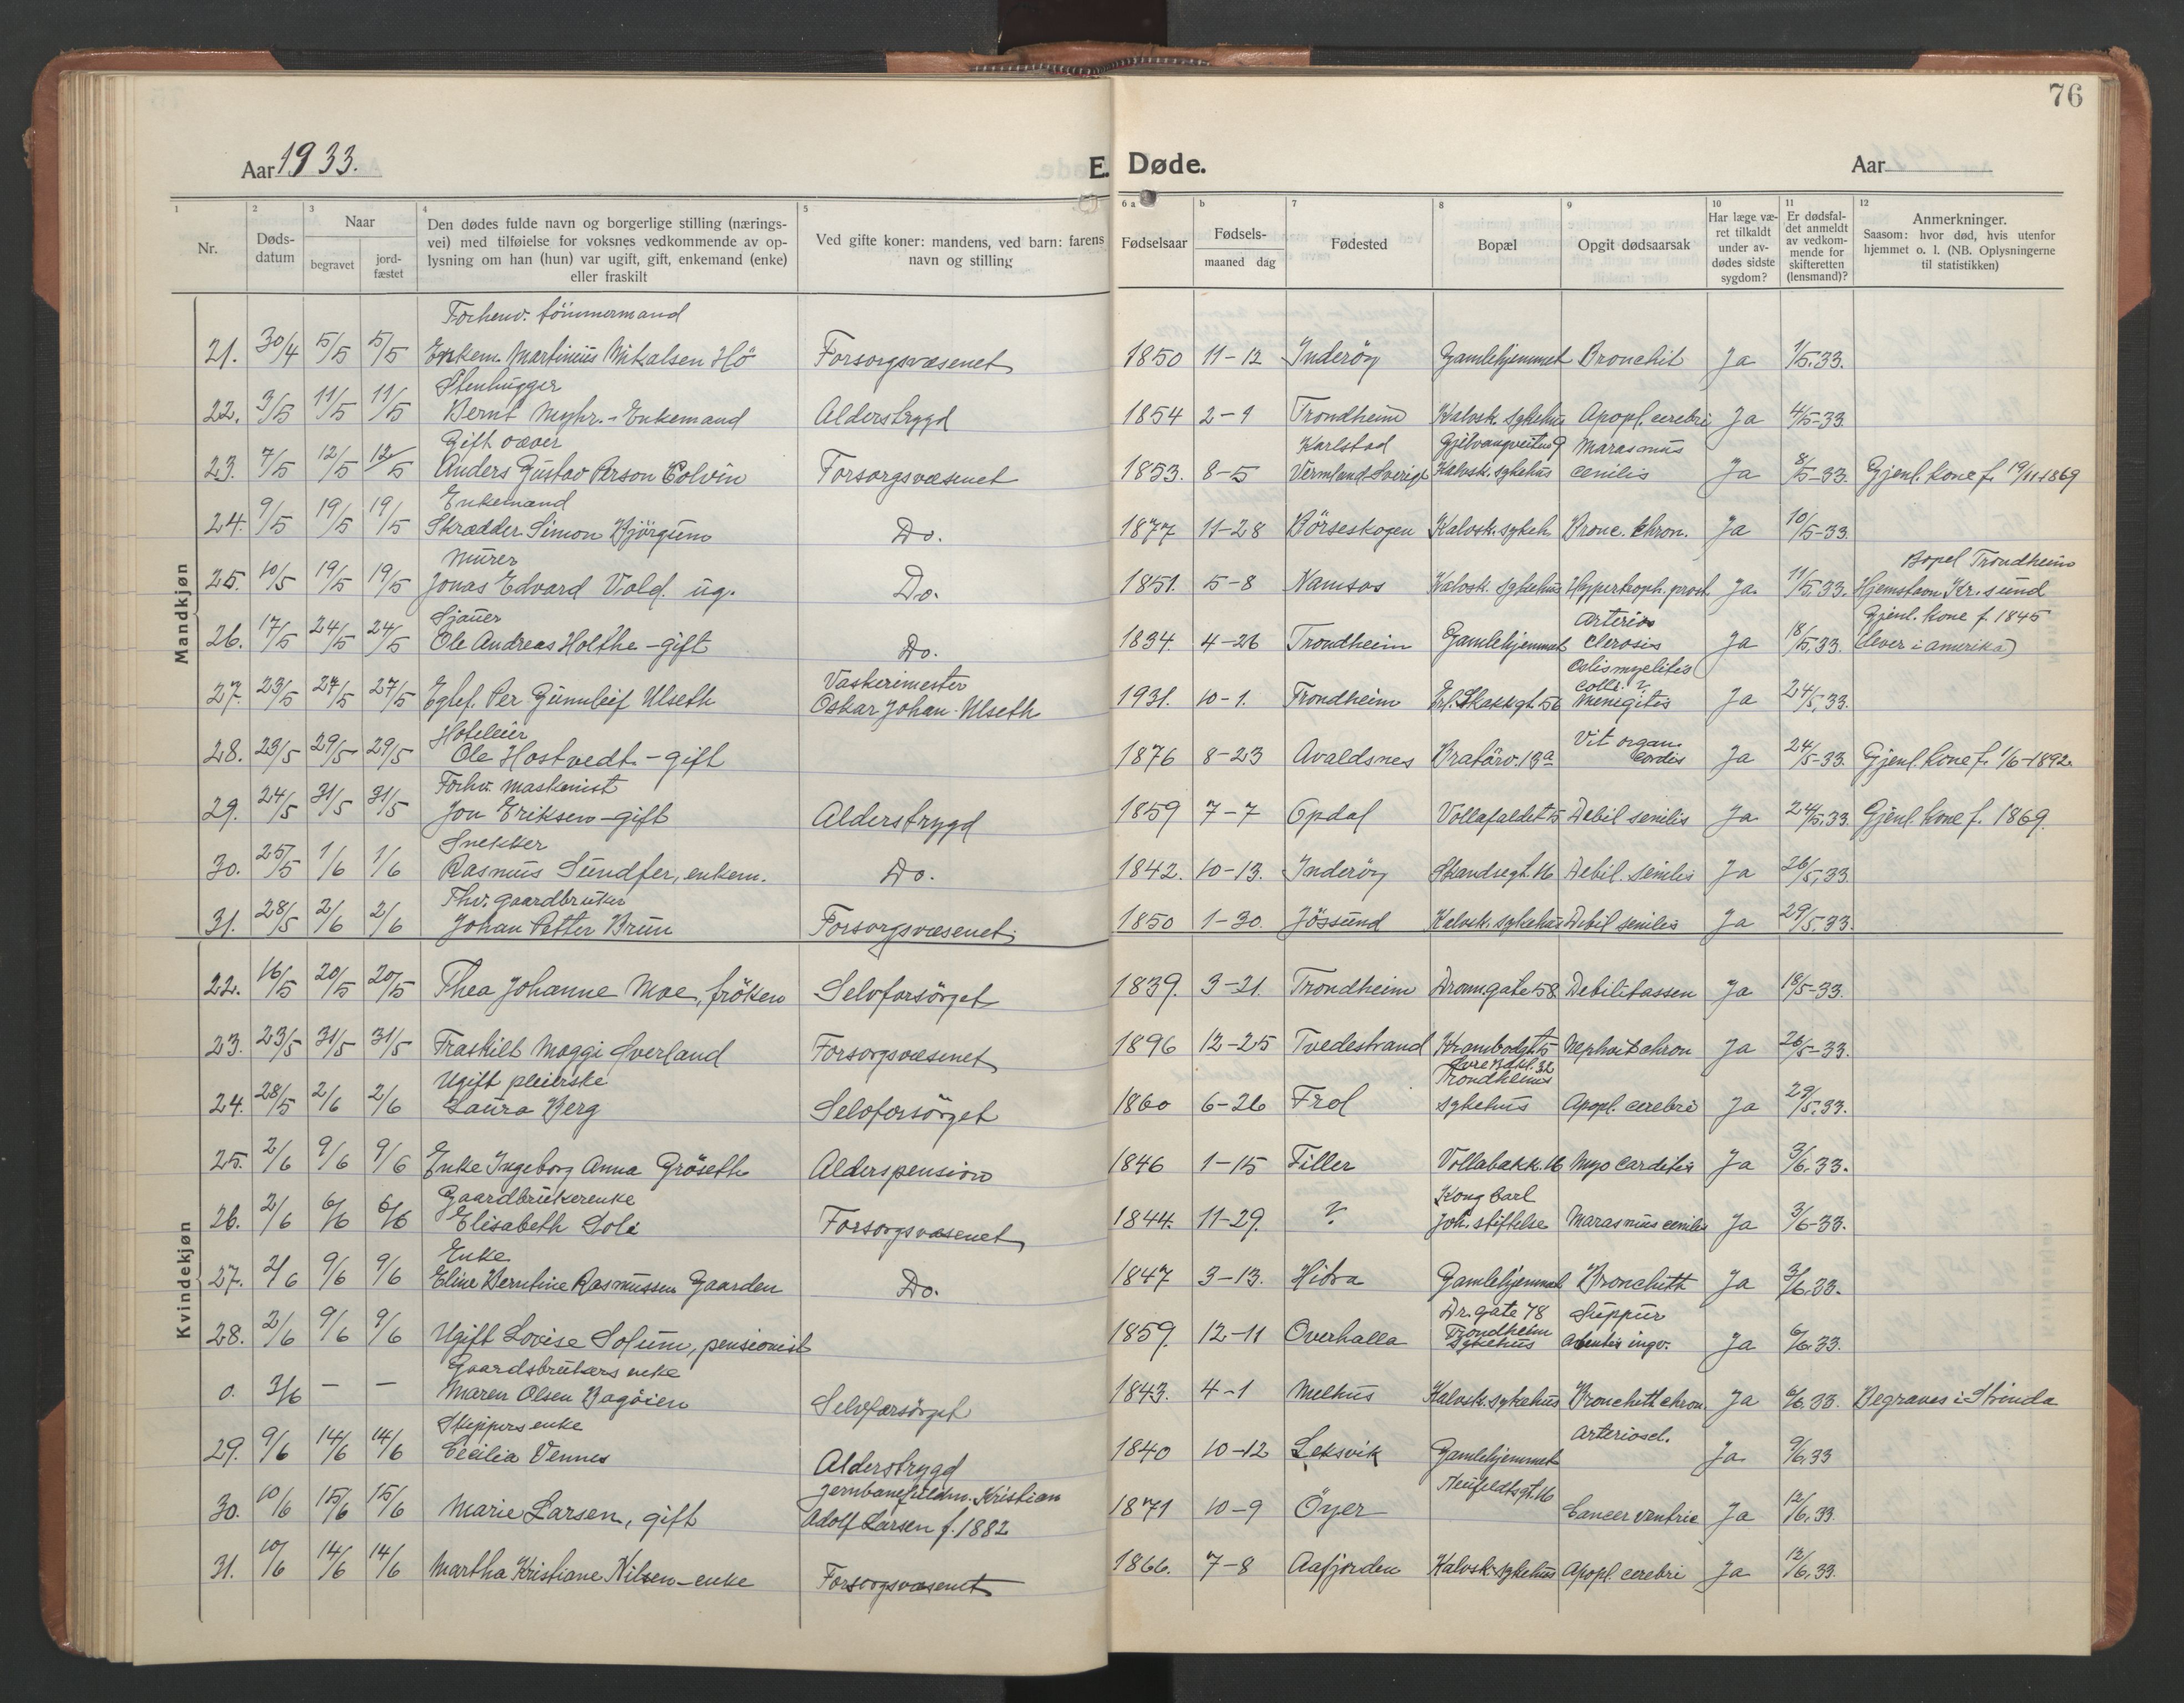 76
Aar 1933.
E. Døde.
Aar
1 2 3 4 5 6 a b 7 8 9 10 11 12
Nr. | Døds-datum | Naar begravet | jord-fæstet | Den dødes fulde navn og borgerlige stilling (nærings-vei) med tilføielse for voksnes vedkommende av op-lysning om han (hun) var ugift, gift, enkemand (enke) eller fraskilt | Ved gifte koner: mandens, ved barn: farens navn og stilling | Fødselsaar | Fødsels-maaned dag | Fødested | Bopæl | Opgit dødsaarsak | Har læge væ-ret tilkaldt under av-dødes sidste sygdom? | Er dødsfal-det anmeldt av vedkom-mende for skifteretten (lensmand)? | Anmerkninger. Saasom: hvor død, hvis utenfor hjemmet o. l. (NB. Oplysningerne til statistikken)
Mandkjøn
Forhenv. tömmermand
21. 30/4 5/5 5/5 Enkem. Martinius Mikalsen Hö Forsorgsvæsenet 1850 11-12 Inderöy Gamlehjemmet Bronchit Ja 1/5.33.
Stenhugger
22. 3/5 11/5 11/5 Bernt Myhr. - Enkemand Alderstrygd 1854 2-1 Trondheim Kalvsk. sykehus Apopl. cerebri Ja 4/5-33.
Gift væver Karlstad Marasmus
23. 7/5 12/5 12/5 Anders Gustav Person Colvin Forsorgsvæsenet 1853. 8-5 Vermland Sverige Kalvsk. sykehus cenilis Ja 8/5-33. Gjenl. kone f. 19/11-1869
Enkemand
24. 9/5 19/5 19/5 Skrædder Simon Bjørgum Do. 1877 11-28 Börseskogen Kalvsk. sykeh. Bronc. Chron. Ja 10/5-33.
Murer Bopel Trondheim
25. 10/5 19/5 19/5 Jonas Edvard Vold. ug. Do. 1851. 5-8 Namsos Kalvsk. sykehus Hypertroph. prost Ja. 11/5.33. Hjemstavn Kr.sund
Sjauer Arterios Gjenl. kone f. 1845
26. 17/5 24/5 24/5 Ole Andreas Holthe - gift Do. 1834. 4-26 Trondheim Gamlehjemmet clerosis Ja 18/5.33. (lever i Amerika)
Vaskerimester Ostismyelitis colli. ?
27. 23/5 27/5 27/5 Egtef. Per Gunnleif Ulseth Oskar Johan Ulseth 1931. 10-1. Trondheim Erl. Skakkgt. 56 Menigitis Ja 24/5.33.
Hoteleier Vit organ.
28. 23/5 29/5 29/5 Ole Hostvedt - gift 1876 8-23 Avaldsnes Bratörv. 13a cordis Ja 24/5-33. Gjenl. kone f. 1/6-1892.
Forhv. maskinist
29. 24/5 31/5 31/5 Jon Eriksen - gift Alderstrygd 1859 7-7 Opdal Vollafaldet 5 Debil senilis Ja 24/5.33. Gjenl. kone f. 1869.
Snekker
30. 25/5 1/6 1/6 Rasmus Sundfer, enkem. Do. 1842. 10-13. Inderöy Strandvegt. 16 Debil. senilis Ja 26/5.33
Fhv. gaardbruker
31. 28/5 2/6 2/6 Johan Petter Brun Forsorgsvæsenet 1850 1-30. Jössund Kalvsk. sykehus Debil senilis Ja 29/5.33.
Kvindekjøn
22. 16/5 20/5 20/5 Thea Johanne Moe, fröken Selvforsörget 1839. 3-21. Trondheim Dronn.gate 58 Debilitassen Ja 18/5-33.
23. 23/5 31/5 31/5 Fraskilt Maggi Sverland Forsorgsvæsenet 1896 12-25 Tvedestrand Krambodgt. 5 Nephrit chron Ja 26/5-33.
Ugift pleierske Trondheims
24. 28/5 2/6 2/6 Laura Berg Selvforsörget 1860 6-26 Frol sykehus Apopl. cerebri Ja 29/5.33.
25. 2/6 9/6 9/6 Enke Ingeborg Anna Gröseth Alderspension 1846 1-15 Tiller Vollabakk. 16 Myo carditis Ja 3/6.33.
Gaardbrukerenke Kong Carl
26. 2/6 6/6 6/6 Elisabeth Soli Forsorgsvæsenet 1844. 11-29. ? Joh. stiftelse Marasmus cenilis Ja 3/6-33.
Enke
27. 2/6 9/6 9/6 Eline Berntine Rasmussen Gaarden Do. 1847 3-13. Hitra Gamlehjemmet Bronchitt Ja 3/6.33.
Dr. gate 78 Suppur
28. 2/6 9/6 9/6 Ugift Lovise Solum, pensionist 1859. 12-11 Overhalla Trondheim Sykehus Ja 6/6.33.
Gaardsbrukers enke
0. 3/6 - - Maren Olsen Bagöien Selvforsörget 1843. 4-1 Melhus Kalvsk. sykehus Bronchitt chron. Ja 6/6.33. Begraves i Strinda
Skippers enke Arteriosel.
29. 9/6 14/6 14/6 Cicilia Vennes Alderstrygd 1840 10-12 Leksvik Gamlehjemmet Ja. 9/6.33
Jernbanefuldm. Kristian Neufeldtsgt. 16
30. 10/6 15/6 15/6 Marie Larsen, gift Adolf Larsen f. 1882 1871 10-9 Öyer Cancer ventric Ja 12/6.33.
31. 10/6 14/6 14/6 Martha Kristiane Nilsen - enke Forsorgsvæsenet 1866. 7-8 Aafjorden Kalvsk. sykehus Apopl. cerebri Ja 12/6.33.